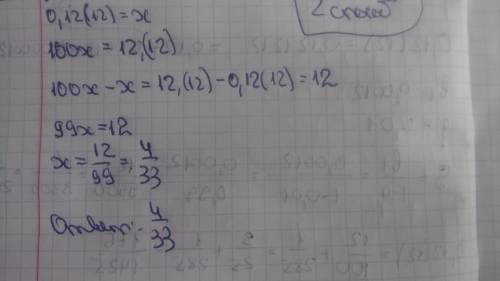 2 способ
0,12(12)=x
100x=12,(12)
100x-x=12,(12)-0,12(12)=12
99x=12
x=12/99=4/33
Ответ: 4/33